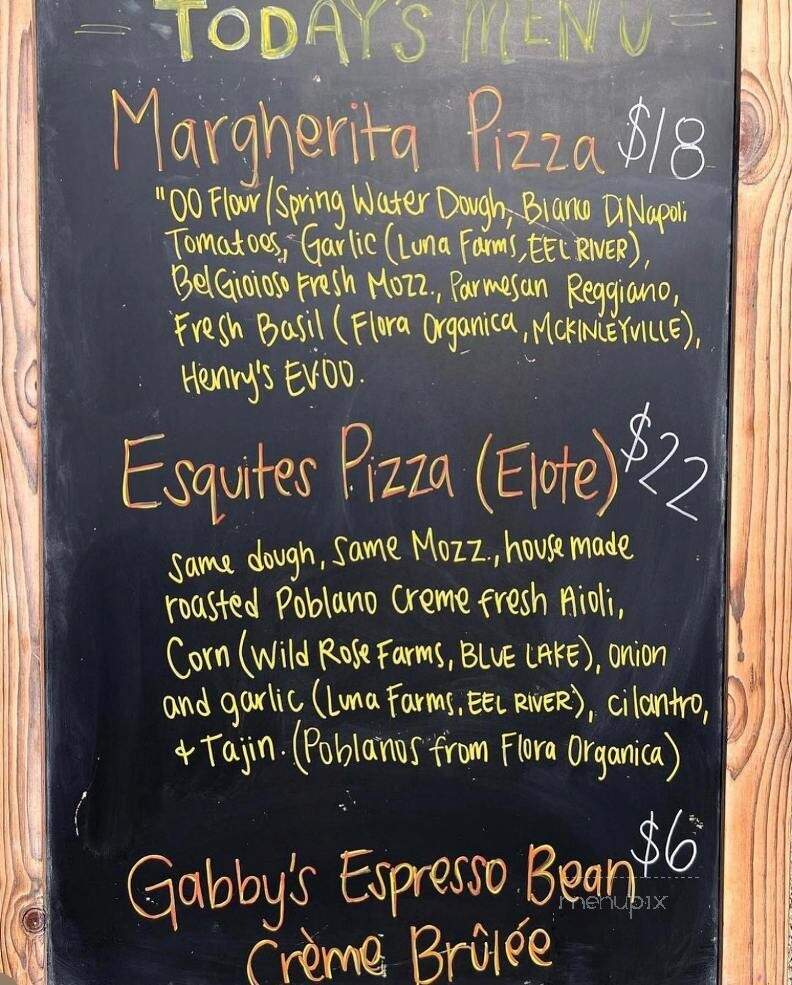 = TODAY'S MENU =
Margherita Pizza $18
"00 Flour/Spring Water Dough, Bianco DiNapoli
Tomatoes, Garlic (Luna Farms, EEL RIVER),
BelGioioso Fresh Mozz., Parmesan Reggiano,
Fresh Basil (Flora Organica, MCKINLEYVILLE),
Henry's EVOO.
Esquites Pizza (Elote) $22
same dough, same Mozz., house made
roasted Poblano Creme fresh Aioli,
Corn (Wild Rose Farms, BLUE LAKE), onion
and garlic (Luna Farms, EEL RIVER), cilantro,
+ Tajin. (Poblanos from Flora Organica)
$6
Gabby's Espresso Bean
Crème Brûlée
menupix